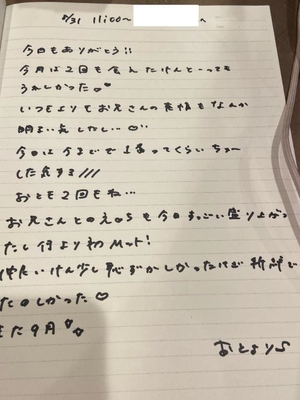 5/31 11:00~
へ
今日もありがとう!!
今月は2回も会えたけんとーっても
うれしかった♡
いつもよりもお兄さんの表情もなんか
明るい気したしい♡
今日は今までで1番ってくらいちゅー
した気する///
おとも2回もね…
お兄さんとのえOSも今日すっごい盛り上がっ
たし何より初Mット!
けん少し恥ずかしかったけど新鮮で
たのしかった♡
また9月
おとより